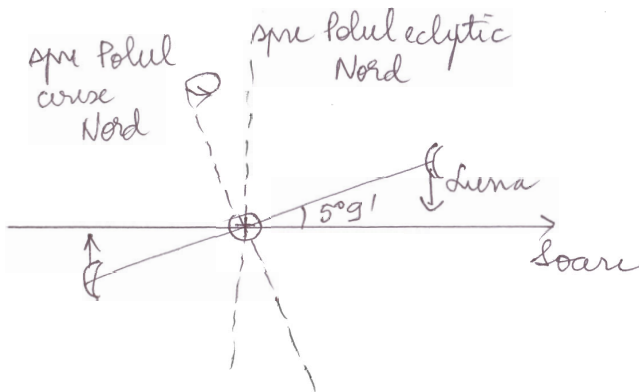 spre Polul
ceresc
Nord
spre Polul ecliptic
Nord
Luna
5°9'
Soare